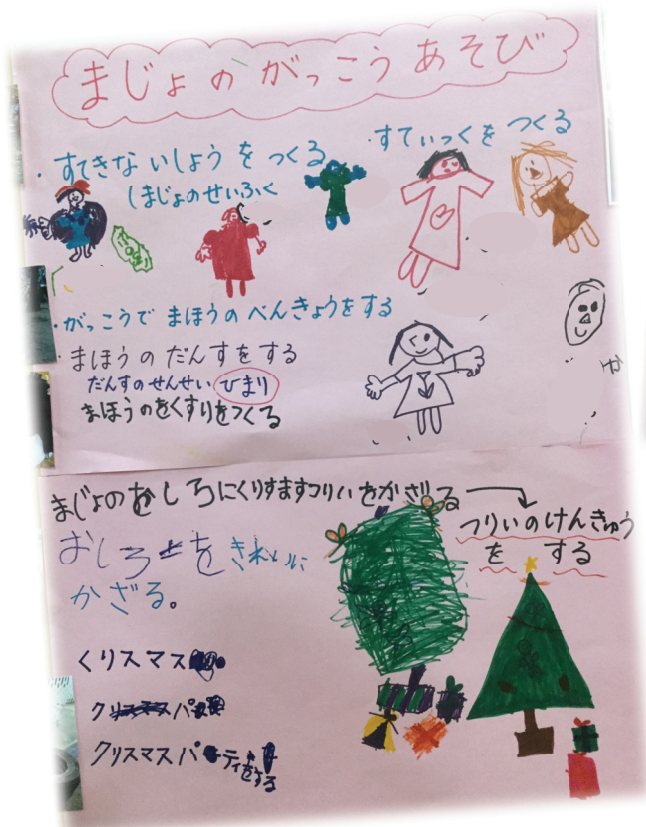 まじょの がっこう あそび
・すてきな いしょう を つくる
しまじょのせいふく
・すてぃっくを つくる
・がっこうで まほうの べんきょうをする
・まほう の だんすを する
だんすのせんせい ひまり
まほうのをくすりをつくる
まじょのおしろにくりすますつりいをかざる
つりいのけんきゅう
を する
おしろを きれいに
かざる。
くリスマス
クパ
クリスマスパーティをする
や